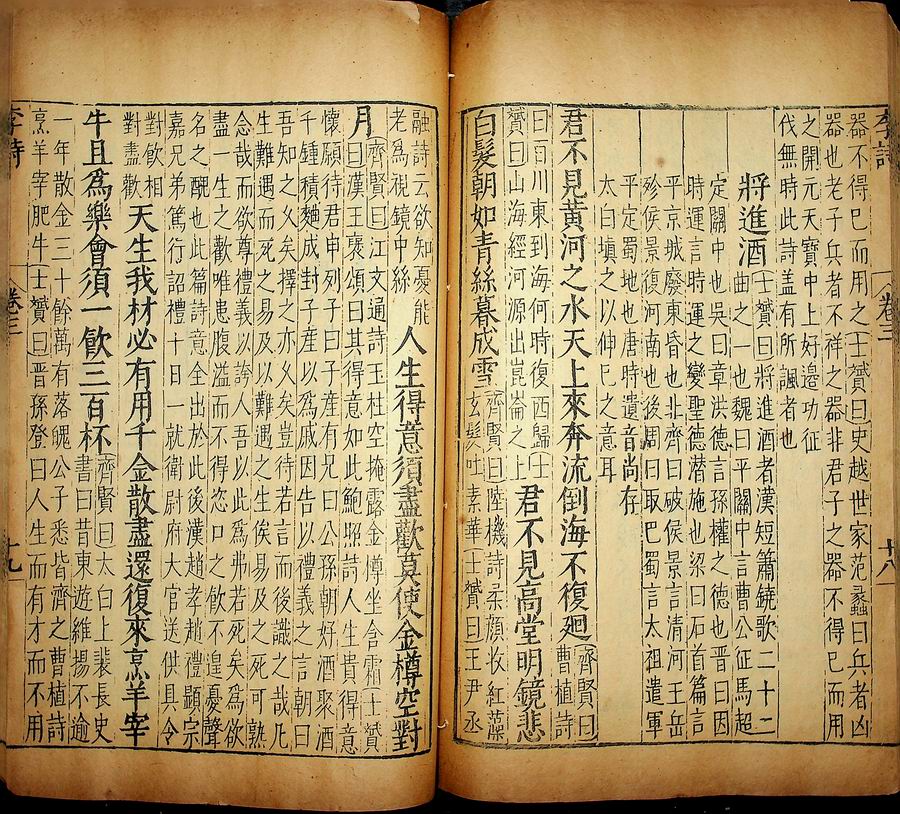 李詩 卷三 十八
器不得已而用之士贇曰史越世家范蠡曰兵者凶
器也老子兵者不祥之器非君子之器不得已而用
之開元天寶中上好邊功征
伐無時此詩蓋有所諷者也
將進酒
士贇曰將進酒者漢短簫鐃歌二十二
曲之一也魏曰平關中言曹公征馬超
定關中也吳曰章洪德言孫權之德也晉曰因
時運言時運之變聖德潛施也梁曰石首篇言
平京城廢東昏也北齊曰破侯景言清河王岳
殄侯景復河南也後周曰取巴蜀言太祖遣軍
平定蜀地也唐時遺音尚存
太白填之以伸己之意耳
君不見黃河之水天上來奔流倒海不復廻
齊賢曰
曹植詩
曰百川東到海何時復西歸士
贇曰山海經河源出崑崙之上
君不見高堂明鏡悲
白髮朝如青絲暮成雪
齊賢曰陸機詩柔顏收紅藻
玄髮吐素華士贇曰王尹丞
融詩云欲知憂能
老爲視鏡中絲
人生得意須盡歡莫使金樽空對
月
齊賢曰江文通詩玉柱空掩露金樽坐含霜士贇
曰漢王褒頌曰其得意如此鮑照詩人生貴得意
懷願待君申列子曰子產有兄曰公孫朝好酒聚酒
千鍾積麴成封子產以爲戚因告以禮義之言朝曰
吾知之乆矣擇之亦乆矣豈待若言而後識之哉凡
生難遇而死之易及以難遇之生俟易及之死可熟
念哉而欲尊禮義以誇人吾以此爲弗若死矣爲欲
盡一生之歡唯患腹溢而不得恣口之飲不遑憂聲
名之醜也此篇詩意全出於此後漢趙孝趙禮顯宗
嘉兄弟篤行詔禮十日一就衛尉府大官送供具令
對飲相
對盡歡
天生我材必有用千金散盡還復來烹羊宰
牛且爲樂會須一飲三百杯
齊賢曰太白上裴長史
書曰昔東遊維揚不逾
一年散金三十餘萬有落魄公子悉皆濟之曹植詩
烹羊宰肥牛士贇曰晉孫登曰人生而有才而不用
李詩 卷三 十九